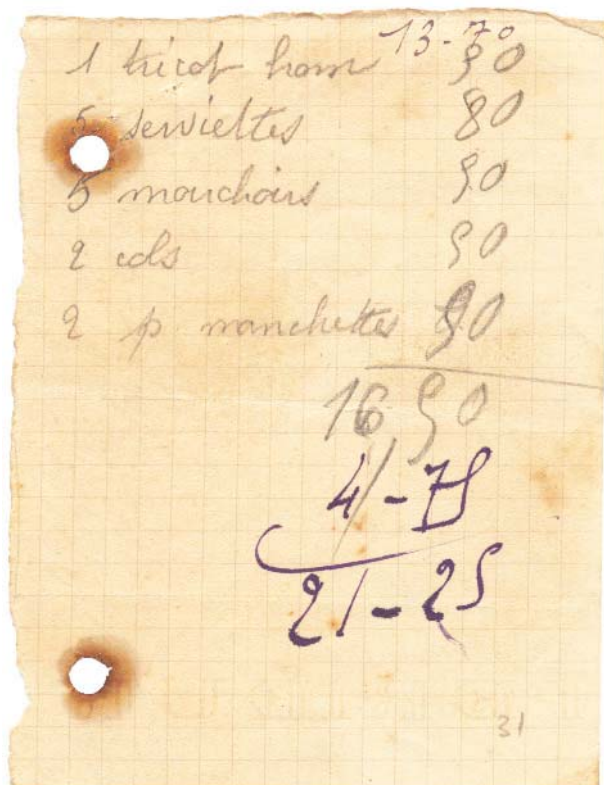 13-70
1 tricot hom 50
5 serviettes 80
5 mouchoirs 50
2 cols 50
2 p manchettes 50
16 50
4-75
21-25
31